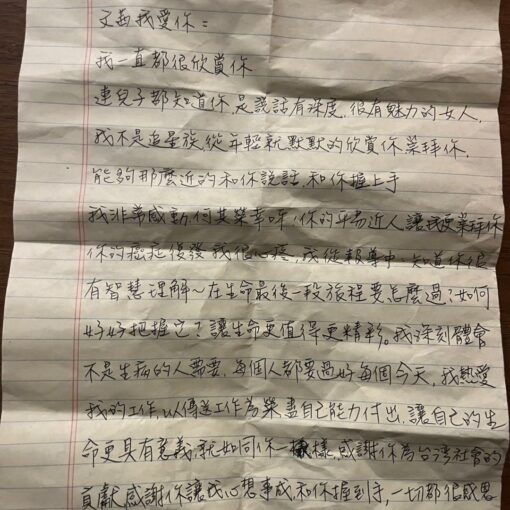 文茜我愛你：
我一直都很欣賞你
連兒子都知道你是說話有深度．很有魅力的女人．
我不是追星族，從年輕就默默的欣賞你崇拜你．
能夠那麼近的和你說話．和你握上手
我非常感動何其榮幸呀，你的平易近人讓我更崇拜你
你的癌症復發我很心疼．我從報導中．知道你很
有智慧理解～在生命最後一段旅程要怎麼過？如何
好好把握它？讓生命更值得更精彩。我深刻體會
不是生病的人需要．每個人都要過好每個今天．我熱愛
我的工作，以傳送工作為榮盡自己能力付出．讓自己的生
命更具有意義，就如同你一樣．感謝你為台灣社會的
貢獻感謝你讓我心想事成．和你握到手．一切都很感恩